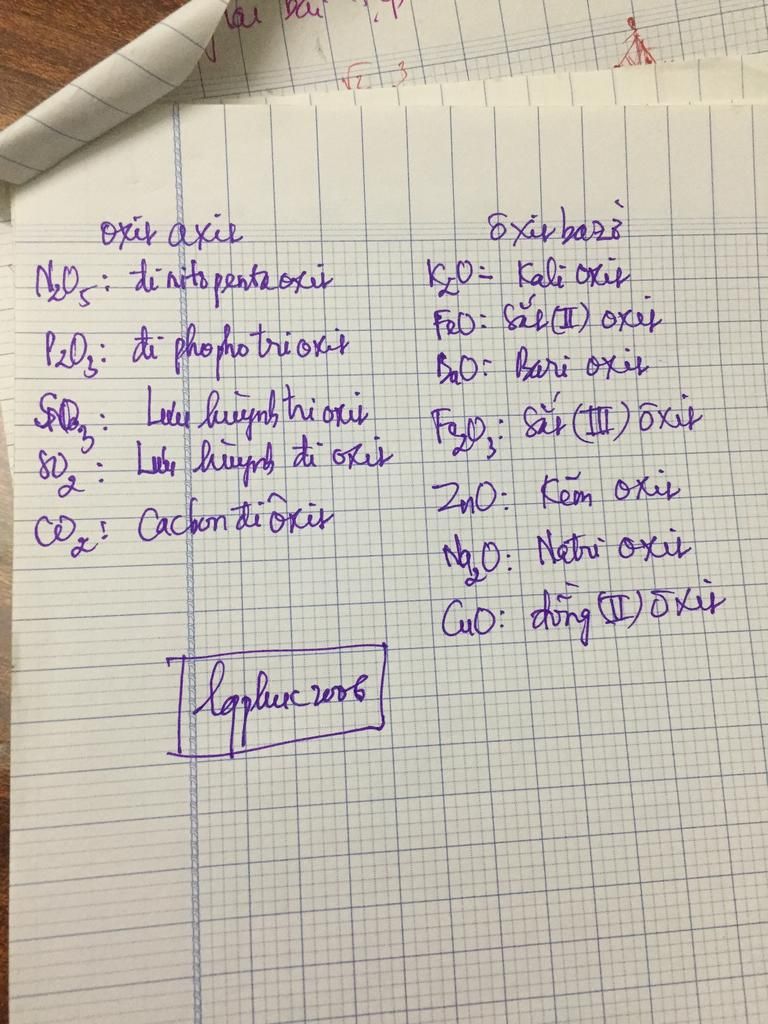 bài
√2 3
oxit axit
N2O5: đi nitơ pentaoxit
P2O3: đi phopho tri oxit
SO3: Lưu huỳnh tri oxit
SO2: Lưu huỳnh đi oxit
CO2: Cacbon đi ôxit
ôxit bazơ
K2O= Kali oxit
FeO: Sắt (II) oxit
BaO: Bari oxit
Fe2O3: Sắt (III) ôxit
ZnO: Kẽm oxit
Na2O: Natri oxit
CuO: đồng (II) ôxit
lqphuc2006